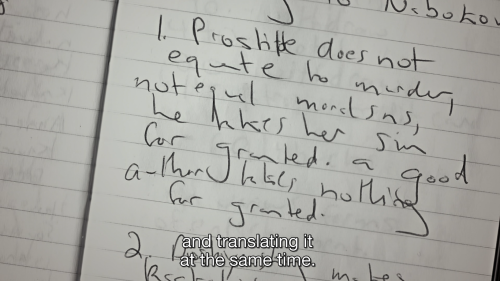 to Nabokov
1. Prostitte does not
equate to murder,
not equal mord sns,
he takes her sin
for granted. a good
author takes nothing
for granted.
2.
makes
and translating it
at the same time.